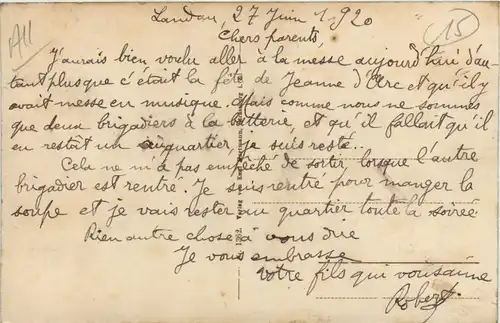 All
15
Landau, 27 Juin 1920
Chers parents,
J'aurais bien voulu aller à la messe aujourd'hui d'au-
tant plus que c'était la fête de Jeanne d'Arc et qu'il y
avait messe en musique. Mais comme nous ne sommes
que deux brigadiers à la Batterie, et qu'il fallait qu'il
en restât un au quartier, je suis resté..
Cela ne m'a pas empêché de sortir, lorsque l'autre
brigadier est rentré. Je suis rentré pour manger la
soupe et je vais rester au quartier toute la soirée
Rien autre chose à vous dire
Je vous embrasse
votre fils qui vous aime
Robert